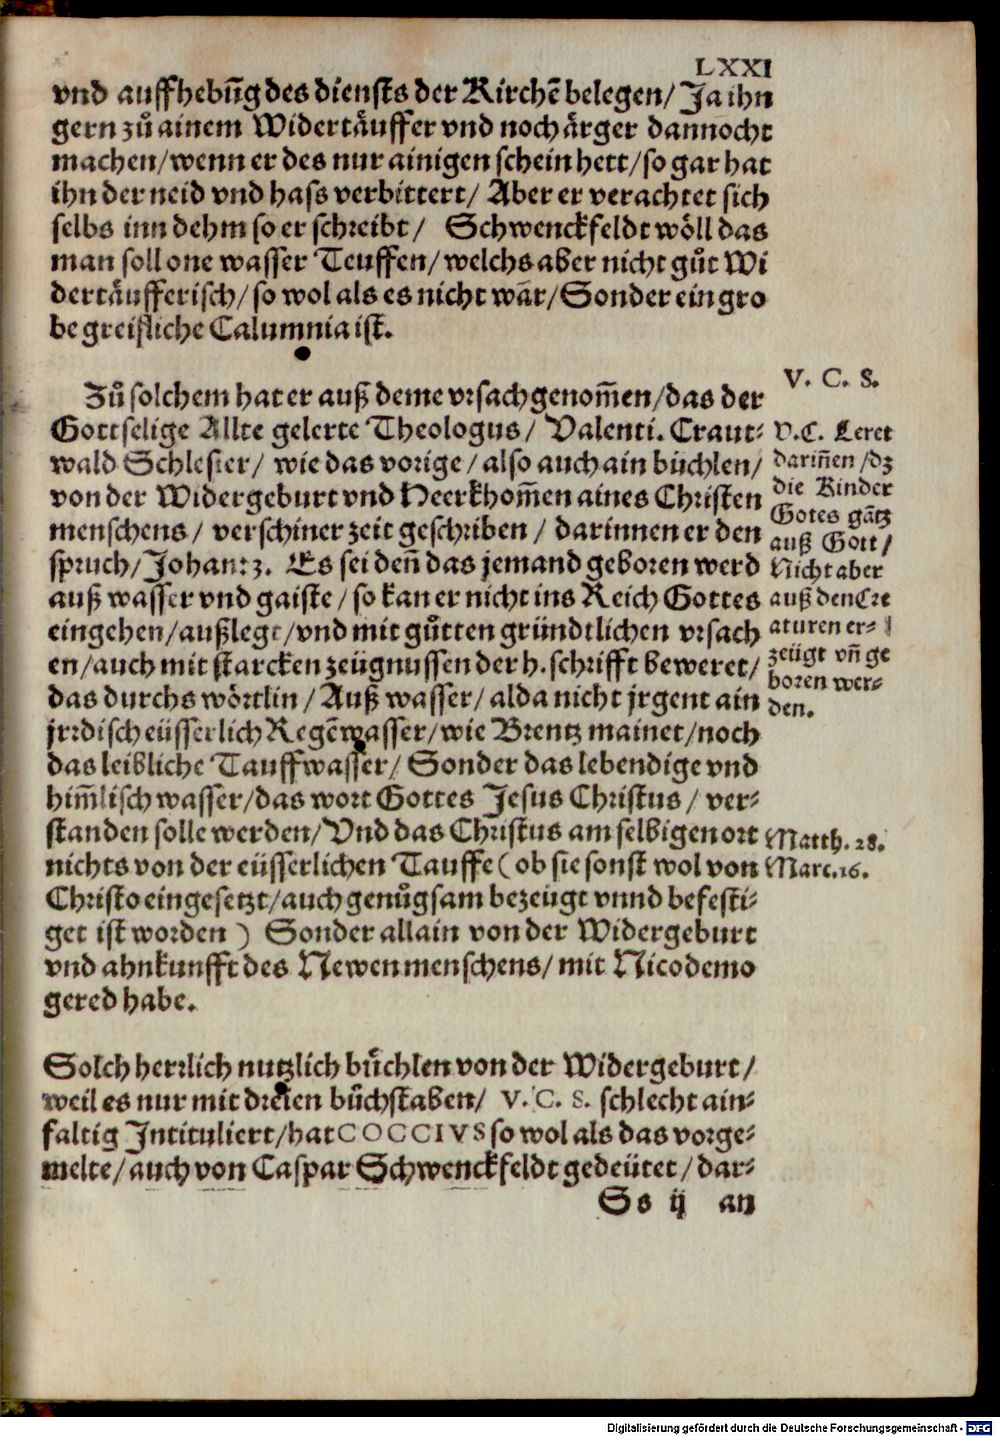 LXXI
vnd auffhebūg des diensts der Kirchē belegen/ Ja ihn
gern zů ainem Widertäuffer vnd noch ärger dannocht
machen/ wenn er des nur ainigen schein hett/ so gar hat
ihn der neid vnd hass verbittert/ Aber er verachtet sich
selbs inn dehm so er schreibt/ Schwenckfeldt wöll das
man soll one wasser Teuffen/ welchs aber nicht gůt Wi
dertäufferisch/ so wol als es nicht wär/ Sonder ein gro
be greifliche Calumnia ist.
Zů solchem hat er auß deme vrsach genom̄en/ das der
Gottselige Allte gelerte Theologus/ Valenti. Craut-
wald Schlesier/ wie das vorige/ also auch ain büchlen/
von der Widergeburt vnd Heerkhom̄en aines Christen
menschens/ verschiner zeit geschriben/ darinnen er den
spruch/ Johan: 3. Es sei den̄ das jemand geboren werd
auß wasser vnd gaiste/ so kan er nicht ins Reich Gottes
eingehen/ außlegt/ vnd mit gůtten gründtlichen vrsach
en/ auch mit starcken zeügnussen der h. schrifft beweret/
das durchs wörtlin/ Auß wasser/ alda nicht jrgent ain
jrrdisch eüsserlich Regēwasser/ wie Brentz mainet/ noch
das leibliche Tauffwasser/ Sonder das lebendige vnd
him̄lisch wasser/ das wort Gottes Jesus Christus/ ver-
standen solle werden/ Vnd das Christus am selbigen ort
nichts von der eüsserlichen Tauffe (ob sie sonst wol von
Christo eingesetzt/ auch genůgsam bezeügt vnnd befesti-
get ist worden) Sonder allain von der Widergeburt
vnd ahnkunfft des Newen menschens/ mit Nicodemo
gered habe.
V. C. S.
V.C. Leret
darin̄en/ dz
die Kinder
Gotes gātz
auß Gott/
Nicht aber
auß den Cre
aturen er-
zeügt vn̄ ge
boren wer-
den.
Matth. 28.
Marc. 16.
Solch herrlich nutzlich bůchlen von der Widergeburt/
weil es nur mit dreien bůchstaben/ V. C. S. schlecht ain-
faltig Intituliert/ hat COCCIVS so wol als das vorge-
melte/ auch von Caspar Schwenckfeldt gedeütet/ dar-
Ss ij an
Digitalisierung gefördert durch die Deutsche Forschungsgemeinschaft - DFG